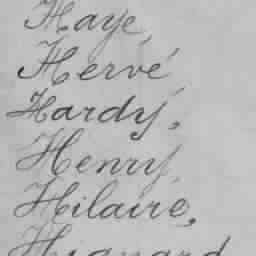 Haye,
Hervé
Hardy,
Henry
Hilaire,